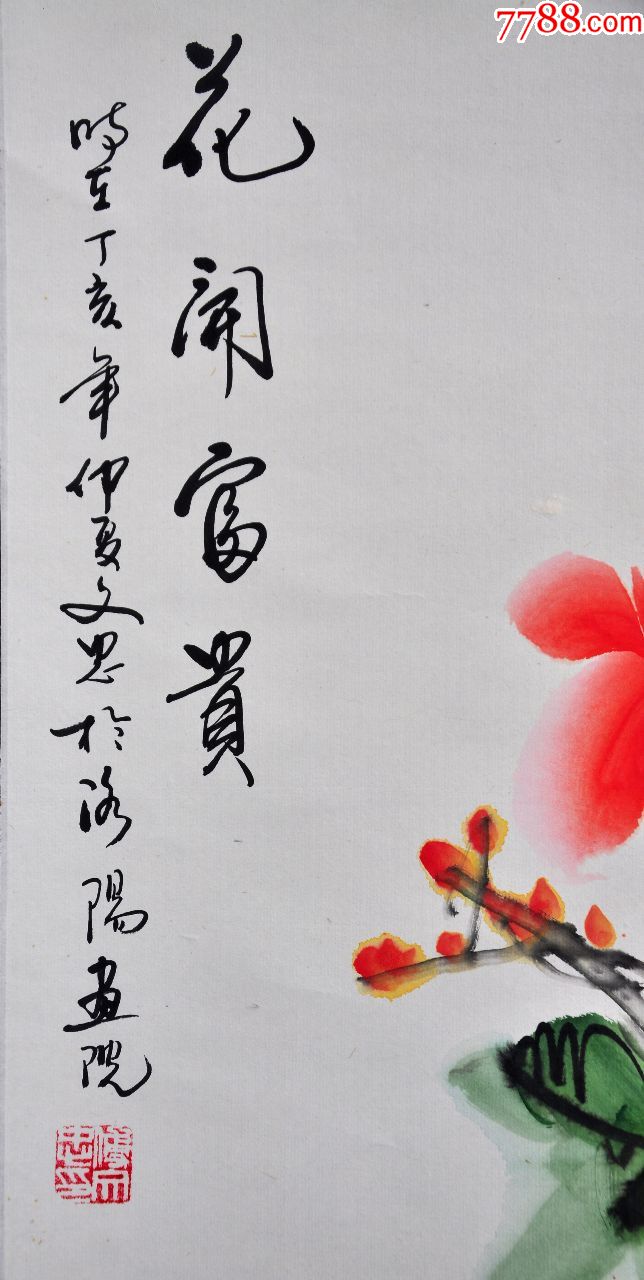 7788.com
花開富貴
時在丁亥年仲夏文思於洛陽畫院